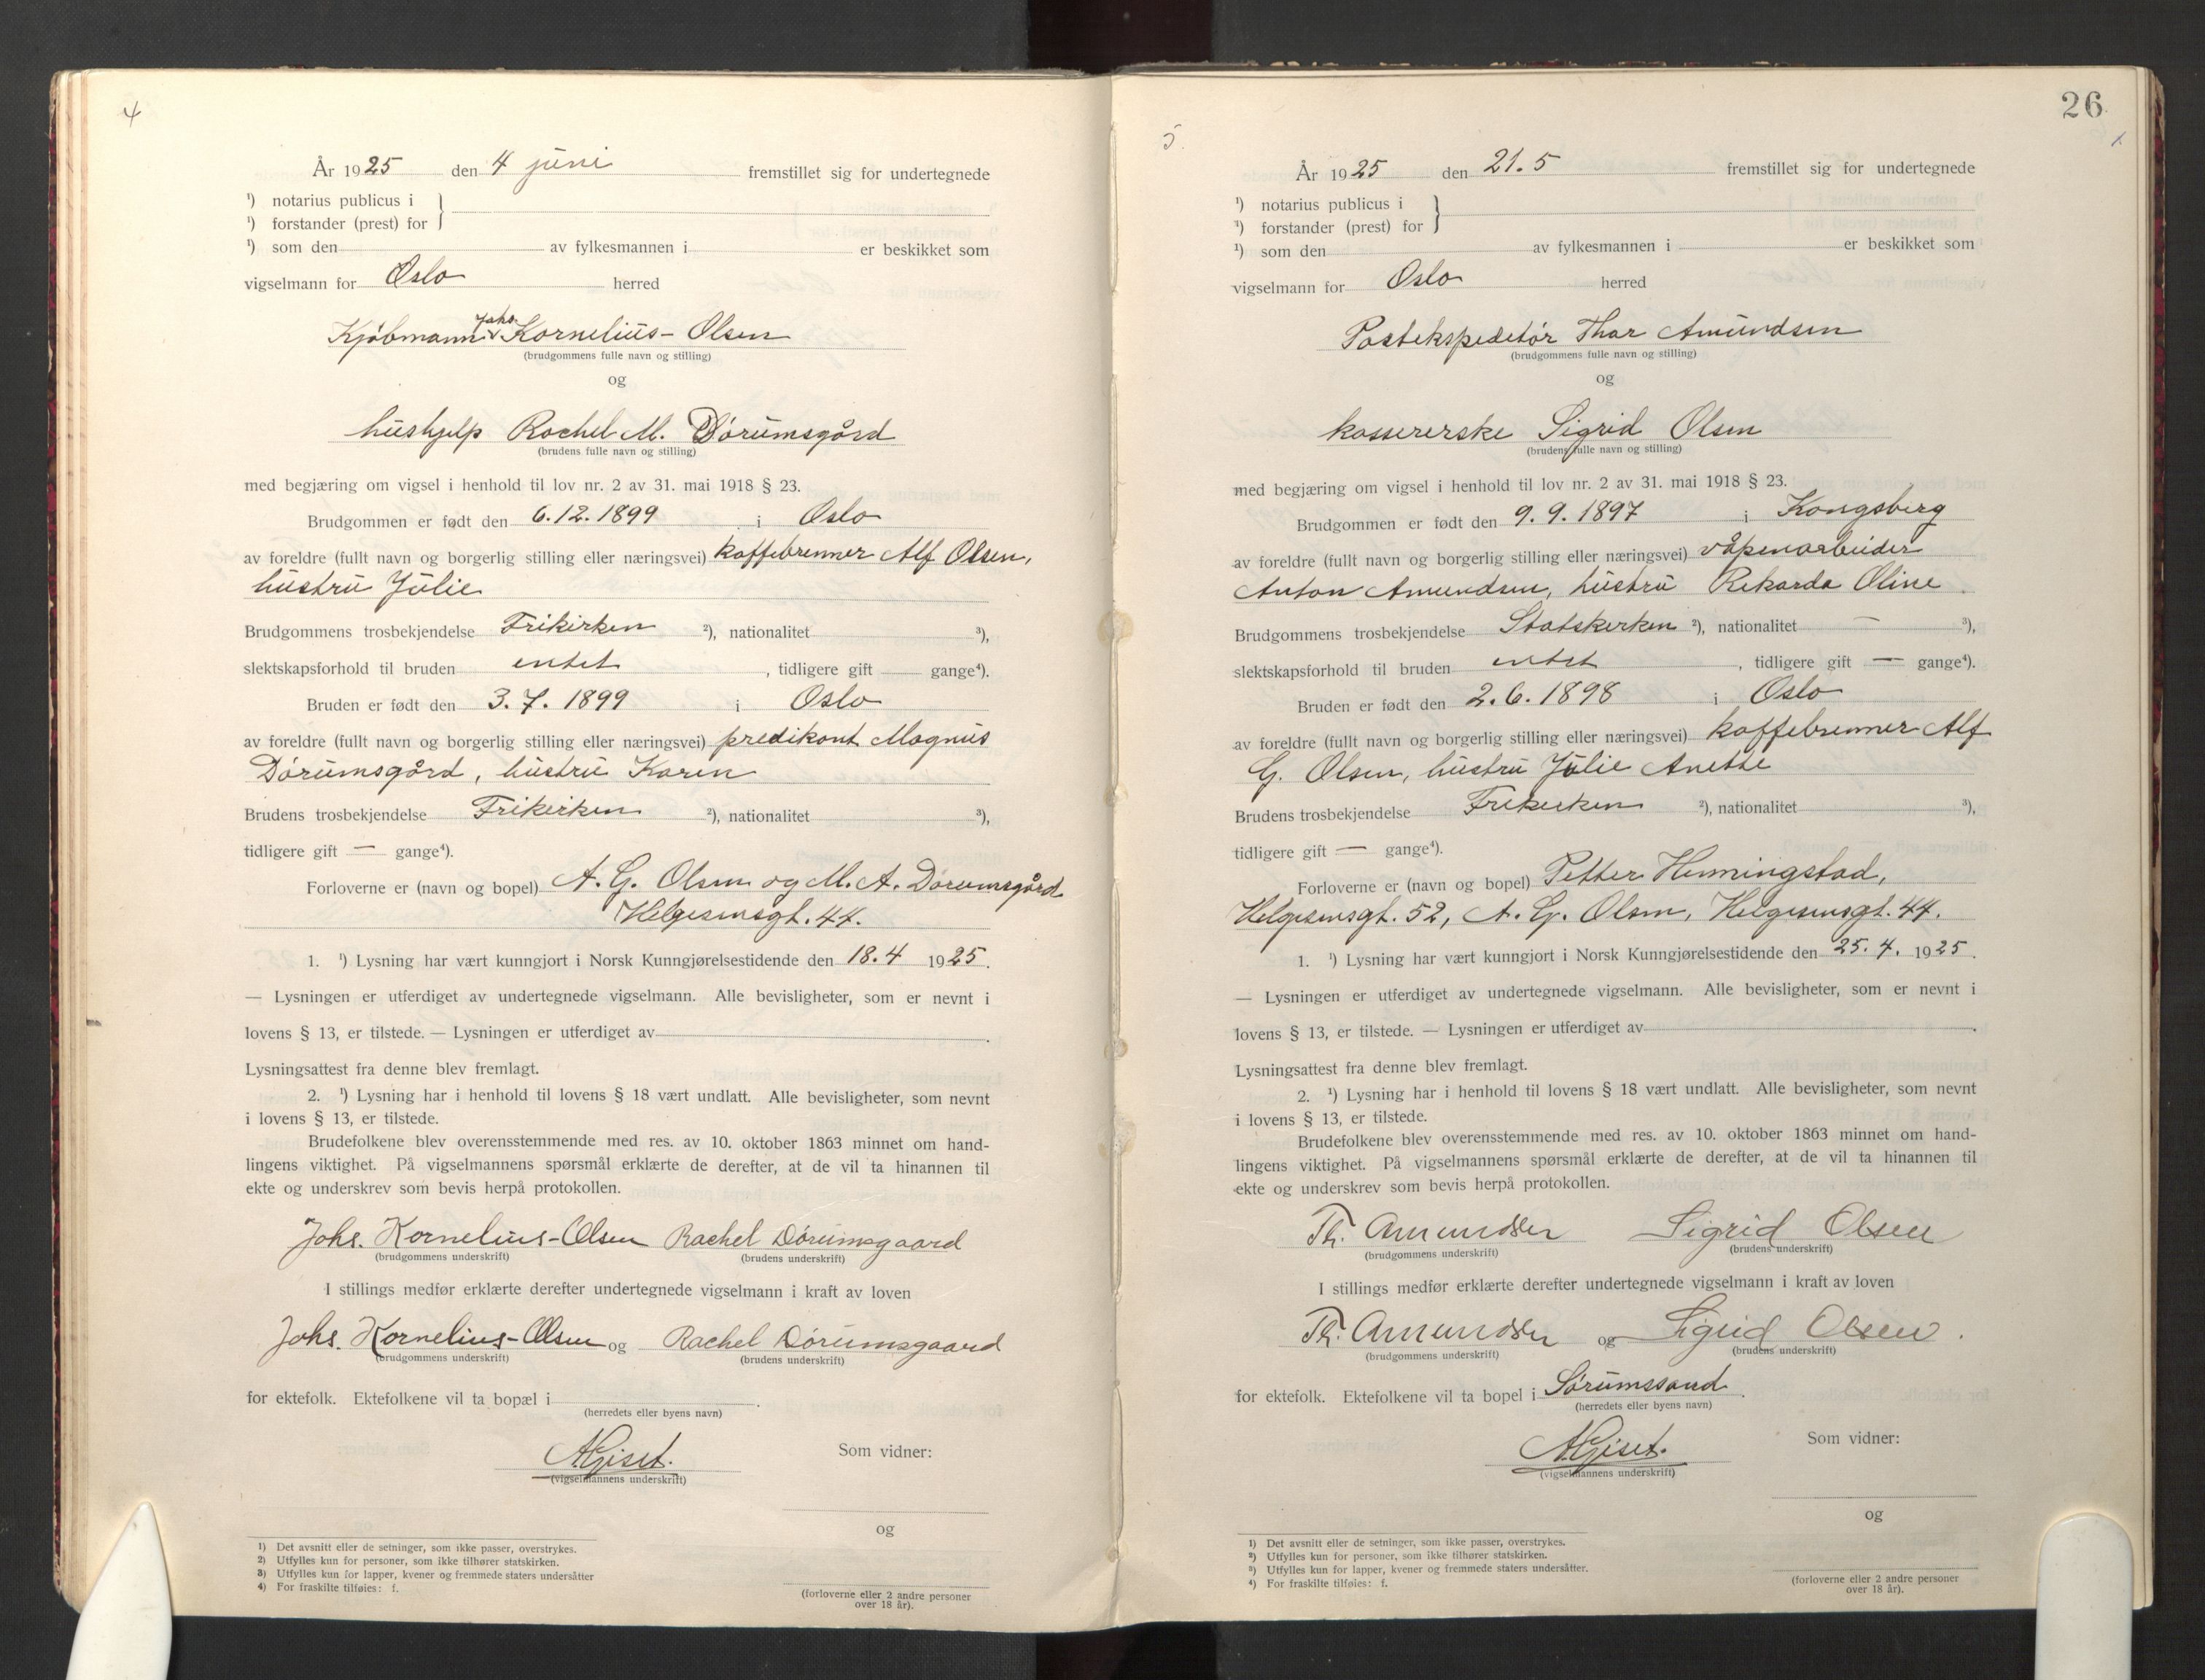 4
År 1925 den 4 juni fremstillet sig for undertegnede
¹) notarius publicus i
¹) forstander (prest) for }
¹) som den av fylkesmannen i er beskikket som
vigselmann for Oslo herred
Johs.
Kjøbmann v Kornelius-Olsen
(brudgommens fulle navn og stilling)
og
hushjelp Rachel M. Dørumsgård
(brudens fulle navn og stilling)
med begjæring om vigsel i henhold til lov nr. 2 av 31. mai 1918 § 23.
Brudgommen er født den 6.12.1899 i Oslo
av foreldre (fullt navn og borgerlig stilling eller næringsvei) kaffebrenner Alf Olsen,
hustru Julie
Brudgommens trosbekjendelse Frikirken ²), nationalitet ³),
slektskapsforhold til bruden intet , tidligere gift gange⁴).
Bruden er født den 3.7.1899 i Oslo
av foreldre (fullt navn og borgerlig stilling eller næringsvei) predikant Magnus
Dørumsgård, hustru Karen
Brudens trosbekjendelse Frikirken ²), nationalitet ³),
tidligere gift — gange⁴).
Forloverne er (navn og bopel) A. G. Olsen og M. A. Dørumsgård
Helgesensgt. 44.
1. ¹) Lysning har vært kunngjort i Norsk Kunngjørelsestidende den 18.4 1925.
— Lysningen er utferdiget av undertegnede vigselmann. Alle bevisligheter, som er nevnt i
lovens § 13, er tilstede. — Lysningen er utferdiget av .
Lysningsattest fra denne blev fremlagt.
2. ¹) Lysning har i henhold til lovens § 18 vært undlatt. Alle bevisligheter, som nevnt
i lovens § 13, er tilstede.
Brudefolkene blev overensstemmende med res. av 10. oktober 1863 minnet om hand-
lingens viktighet. På vigselmannens spørsmål erklærte de derefter, at de vil ta hinannen til
ekte og underskrev som bevis herpå protokollen.
Johs. Kornelius-Olsen Rachel Dørumsgaard
(brudgommens underskrift) (brudens underskrift)
I stillings medfør erklærte derefter undertegnede vigselmann i kraft av loven
Johs. Kornelius-Olsen og Rachel Dørumsgaard
(brudgommens underskrift) (brudens underskrift)
for ektefolk. Ektefolkene vil ta bopæl i .
(herredets eller byens navn)
A Giset. Som vidner:
(vigselmannens underskrift)
og
1) Det avsnitt eller de setninger, som ikke passer, overstrykes.
2) Utfylles kun for personer, som ikke tilhører statskirken.
3) Utfylles kun for lapper, kvener og fremmede staters undersåtter
4) For fraskilte tilføies: f.
(forloverne eller 2 andre personer
over 18 år).
26
5
År 1925 den 21.5 fremstillet sig for undertegnede
¹) notarius publicus i
¹) forstander (prest) for }
¹) som den av fylkesmannen i er beskikket som
vigselmann for Oslo herred
Postekspeditør Thor Amundsen
(brudgommens fulle navn og stilling)
og
kassererske Sigrid Olsen
(brudens fulle navn og stilling)
med begjæring om vigsel i henhold til lov nr. 2 av 31. mai 1918 § 23.
Brudgommen er født den 9.9.1897 i Kongsberg
av foreldre (fullt navn og borgerlig stilling eller næringsvei) våpenarbeider
Anton Amundsen, hustru Rikarda Oline
Brudgommens trosbekjendelse Statskirken ²), nationalitet — ³),
slektskapsforhold til bruden intet , tidligere gift — gange⁴).
Bruden er født den 2.6.1898 i Oslo
av foreldre (fullt navn og borgerlig stilling eller næringsvei) kaffebrenner Alf
G. Olsen, hustru Julie Anette
Brudens trosbekjendelse Frikirken ²), nationalitet ³),
tidligere gift — gange⁴).
Forloverne er (navn og bopel) Petter Henningstad,
Helgesensgt. 52, A. G. Olsen, Helgesensgt. 44.
1. ¹) Lysning har vært kunngjort i Norsk Kunngjørelsestidende den 25.4. 1925.
— Lysningen er utferdiget av undertegnede vigselmann. Alle bevisligheter, som er nevnt i
lovens § 13, er tilstede. — Lysningen er utferdiget av .
Lysningsattest fra denne blev fremlagt.
2. ¹) Lysning har i henhold til lovens § 18 vært undlatt. Alle bevisligheter, som nevnt
i lovens § 13, er tilstede.
Brudefolkene blev overensstemmende med res. av 10. oktober 1863 minnet om hand-
lingens viktighet. På vigselmannens spørsmål erklærte de derefter, at de vil ta hinannen til
ekte og underskrev som bevis herpå protokollen.
Th. Amundsen Sigrid Olsen
(brudgommens underskrift) (brudens underskrift)
I stillings medfør erklærte derefter undertegnede vigselmann i kraft av loven
Th. Amundsen og Sigrid Olsen.
(brudgommens underskrift) (brudens underskrift)
for ektefolk. Ektefolkene vil ta bopel i Sørumssand.
(herredets eller byens navn)
A Giset. Som vidner:
(vigselmannens underskrift)
og
1) Det avsnitt eller de setninger, som ikke passer, overstrykes.
2) Utfylles kun for personer, som ikke tilhører statskirken.
3) Utfylles kun for lapper, kvener og fremmede staters undersåtter.
4) For fraskilte tilføies: f.
(forloverne eller 2 andre personer
over 18 år).